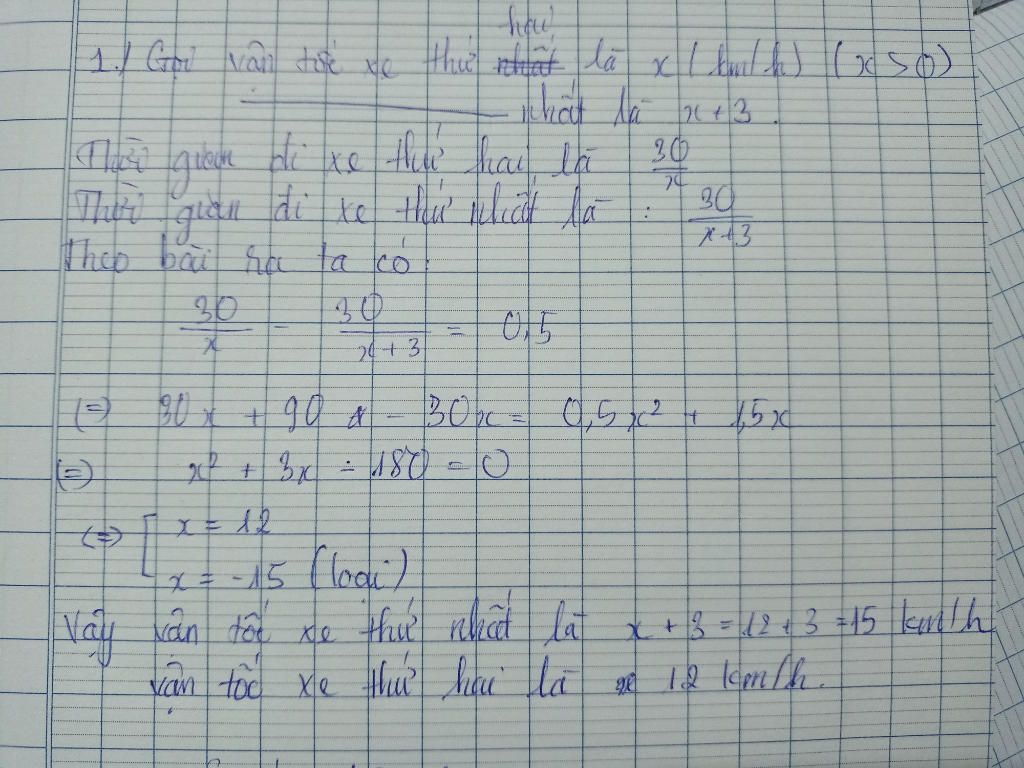 hai
1./ Gọi vận tốc xe thứ nhất là x (km/h) (x > 0)
nhất là x + 3.
Thời gian đi xe thứ hai là 30/x
Thời gian đi xe thứ nhất là : 30/(x+3)
Theo bài ra ta có:
30/x - 30/(x+3) = 0,5
(=) 30x + 90 - 30x = 0,5x² + 1,5x
(=) x² + 3x - 180 = 0
(=) [ x = 12
x = -15 (loại)
Vậy vận tốc xe thứ nhất là x + 3 = 12 + 3 = 15 km/h
vận tốc xe thứ hai là 12 km/h.